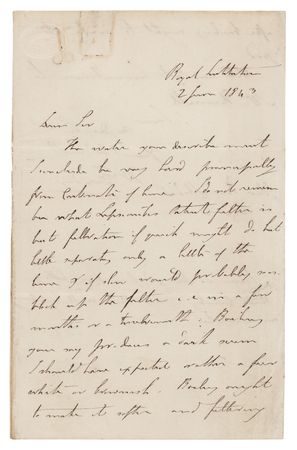 Royal Institution
2 June 1843
Dear Sir
The water you describe must
be very hard principally
from Carbonate of lime. I do not remem
ber what Lipscombes Patent filter is
but filtration if quick might do but
little separate only a little of the
lime & if slow would probably
block up the filter i.e. in a few
months or a twelvemonth. Boiling
you say produces a dark scum
I should have expected rather a
white or brownish. Boiling ought
to make it softer and filtering